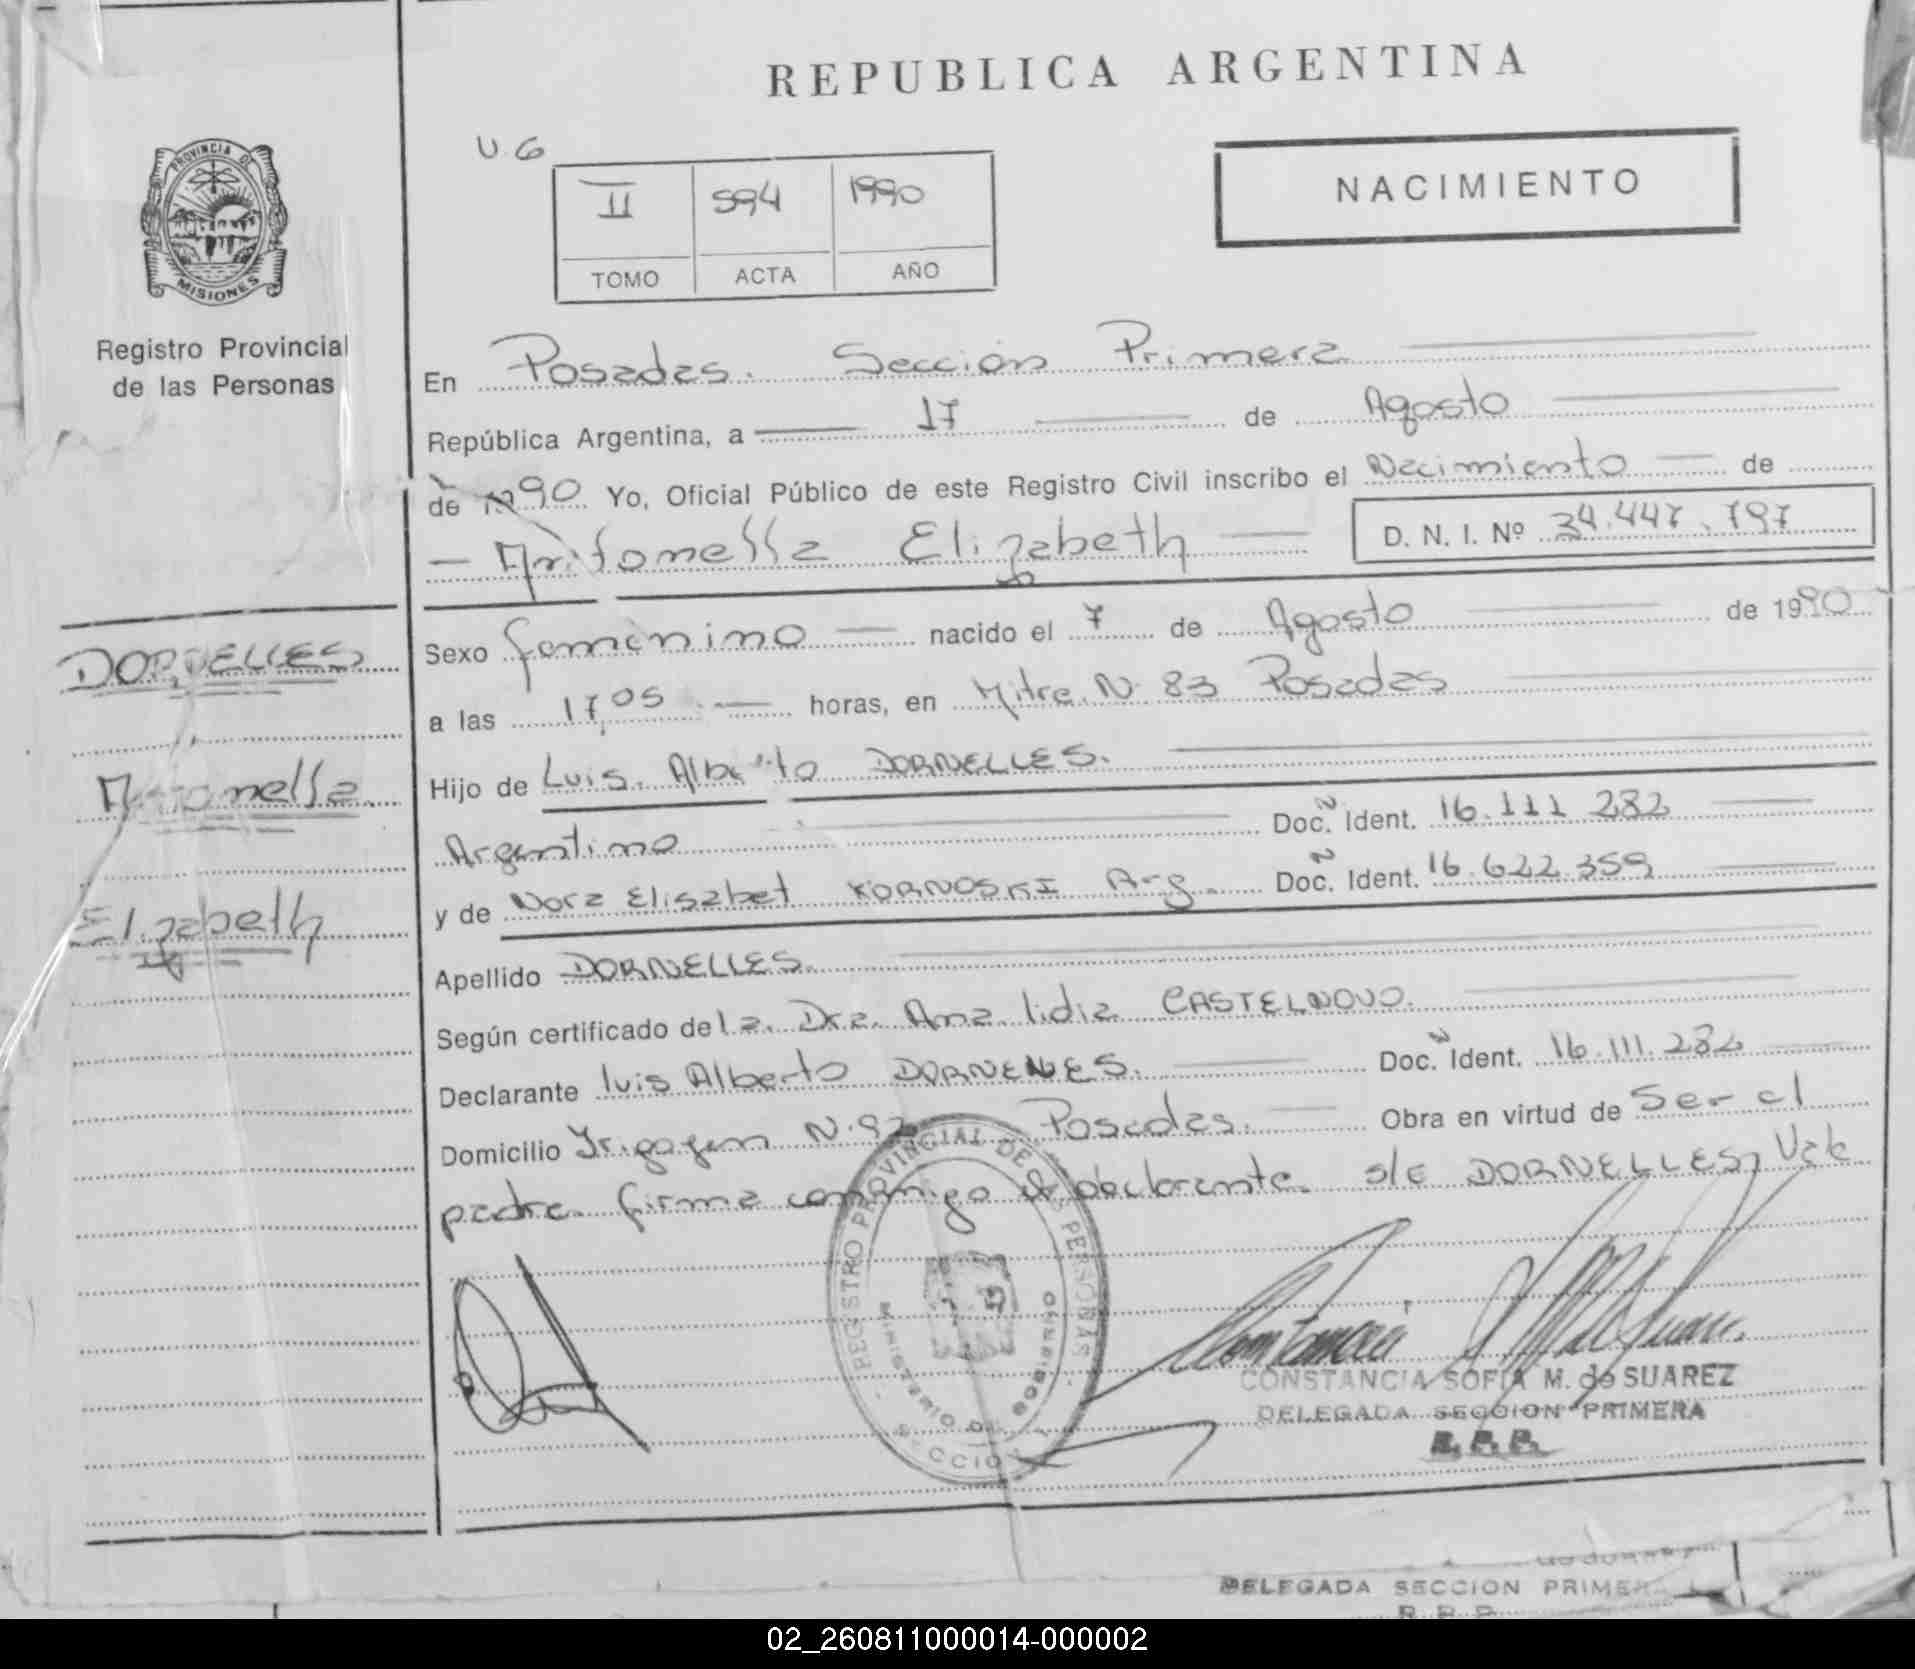 REPUBLICA ARGENTINA
U 6
II 594 1990
TOMO ACTA AÑO
NACIMIENTO
PROVINCIA DE
MISIONES
Registro Provincial
de las Personas
En Posadas. Sección Primera
República Argentina, a 17 de Agosto
de 1990 Yo, Oficial Público de este Registro Civil inscribo el Nacimiento de
Antonella Elizabeth D. N. I. Nº 34.447.797
DORNELLES
Antonella
Elizabeth
Sexo femenino nacido el 7 de Agosto de 1990
a las 17,05 horas, en Mitre N 83 Posadas
Hijo de Luis Alberto DORNELLES.
Argentino Doc. Ident. 16.111 282
y de Nora Elisabet KORNOSKI Arg. Doc. Ident. 16.622.359
Apellido DORNELLES.
Según certificado de la Dra. Ana lidia CASTELNOVO.
Declarante luis Alberto DORNELLES. Doc. Ident. 16.111.282
Domicilio Yrigoyen N. Posadas. Obra en virtud de Ser el
padre. firma conmigo el declarante. s/e DORNELLES, Vale
REGISTRO PROVINCIAL DE LAS PERSONAS
MINISTERIO DE GOBIERNO
CONSTANCIA SOFIA M. de SUAREZ
DELEGADA SECCION PRIMERA
R. P. P.
DELEGADA SECCION PRIMERA
R. P. P.
02_260811000014-000002